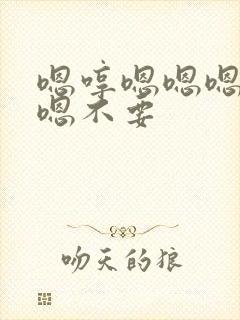 嗯哼嗯嗯嗯
嗯不要
吻天的狼